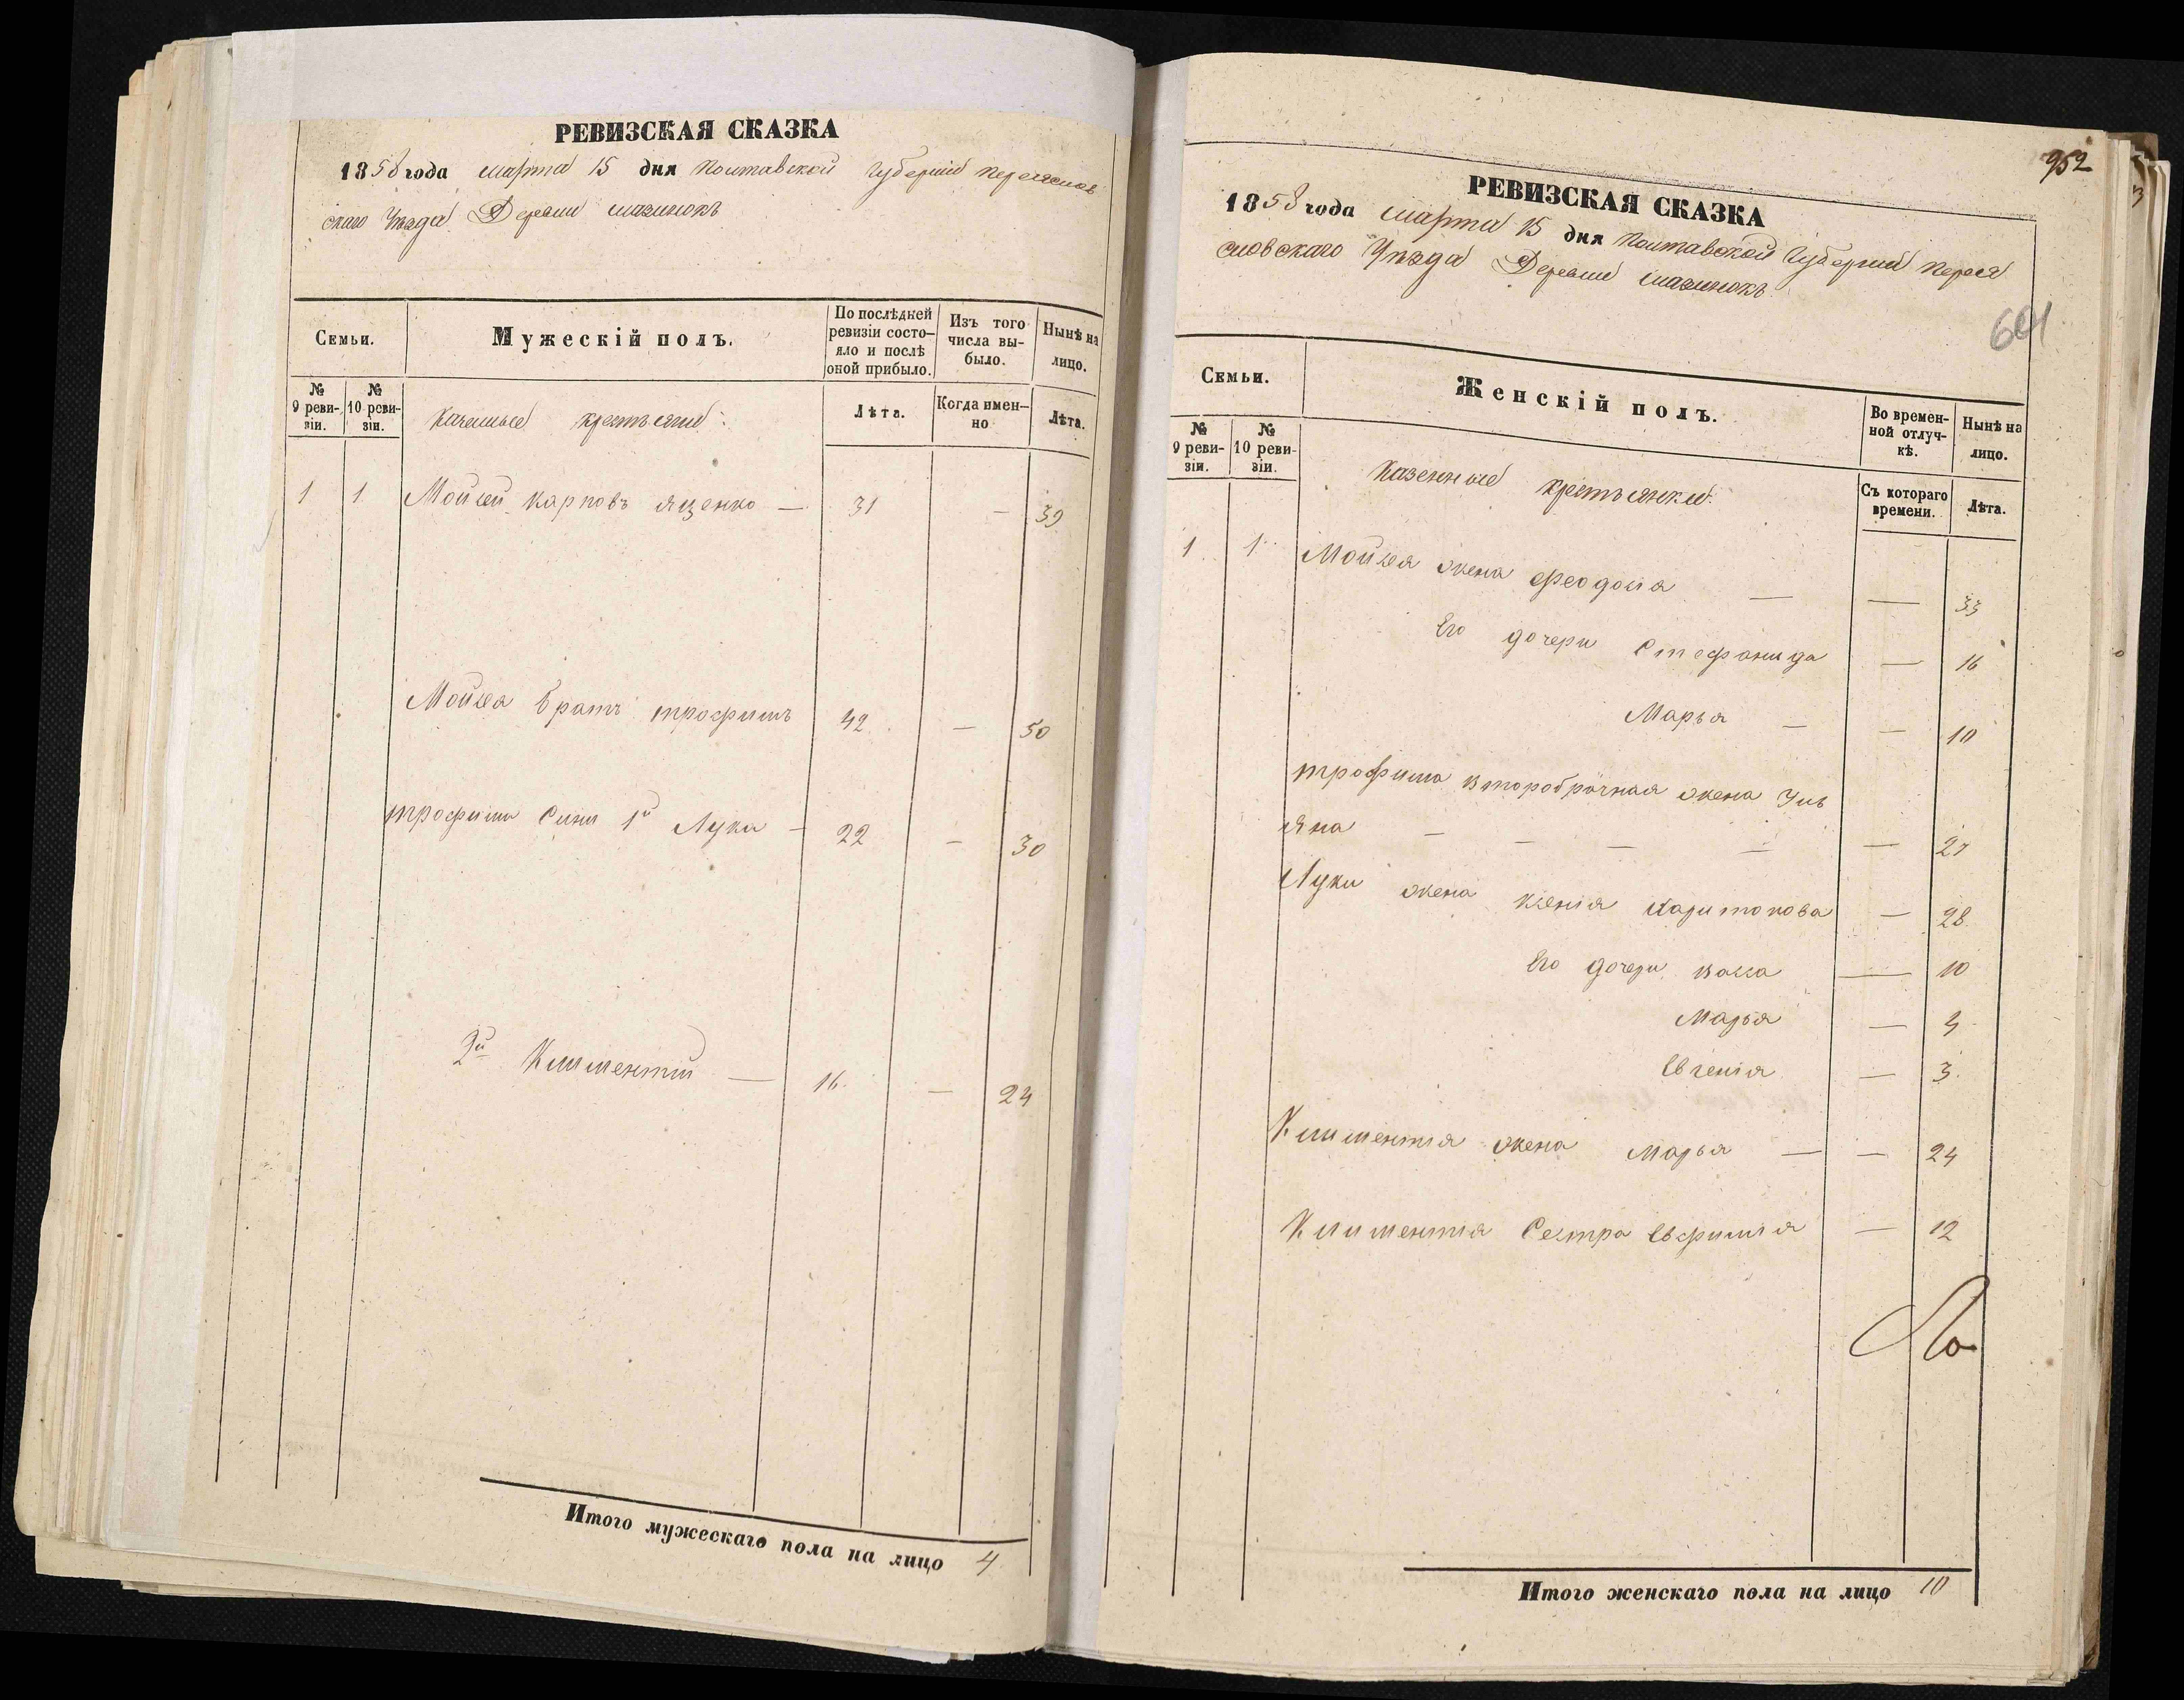 РЕВИЗСКАЯ СКАЗКА
1858 года марта 15 дня Полтавской Губерніи Переяслов
скаго Уѣзда Деревни мазинокъ
Семьи.
Мужескій полъ.
По послѣдней ревизіи состо-яло и послѣ оной прибыло.
Изъ того числа вы-было.
Нынѣ на лицо.
№ 9 реви-зіи.
№ 10 реви-зіи.
Казенные крестьяне:
Лѣта.
Когда имен-но
Лѣта.
1 1 Мойсей карповъ яценко — 31 — 39
Мойсея братъ трофимъ 42 — 50
трофима Сины 1й Лука — 22 — 30
2й Климентий — 16 — 24
Итого мужескаго пола на лицо 4
952
РЕВИЗСКАЯ СКАЗКА
1858 года марта 15 дня Полтавской Губерніи Перея
словскаго Уѣзда Деревни мазинокъ
601
Семьи.
Женскій полъ.
Во времен-ной отлуч-кѣ.
Нынѣ на лицо.
№ 9 реви-зіи.
№ 10 реви-зіи.
Казенные крестьянки:
Съ котораго времени.
Лѣта.
1 1 Мойсея жена феодосія — — 33
Его дочери Стефанида — 16
Марья — — 10
трофима второбрачная жена Уль
яна — — — — — 27
Луки жена ксенія харитонова — 28
Его дочери васса — 10
Марья — 4
Евгенія — 3
Климентія жена Марья — — 24
Климентія Сестра Евфимія — 12
Итого женскаго пола на лицо 10